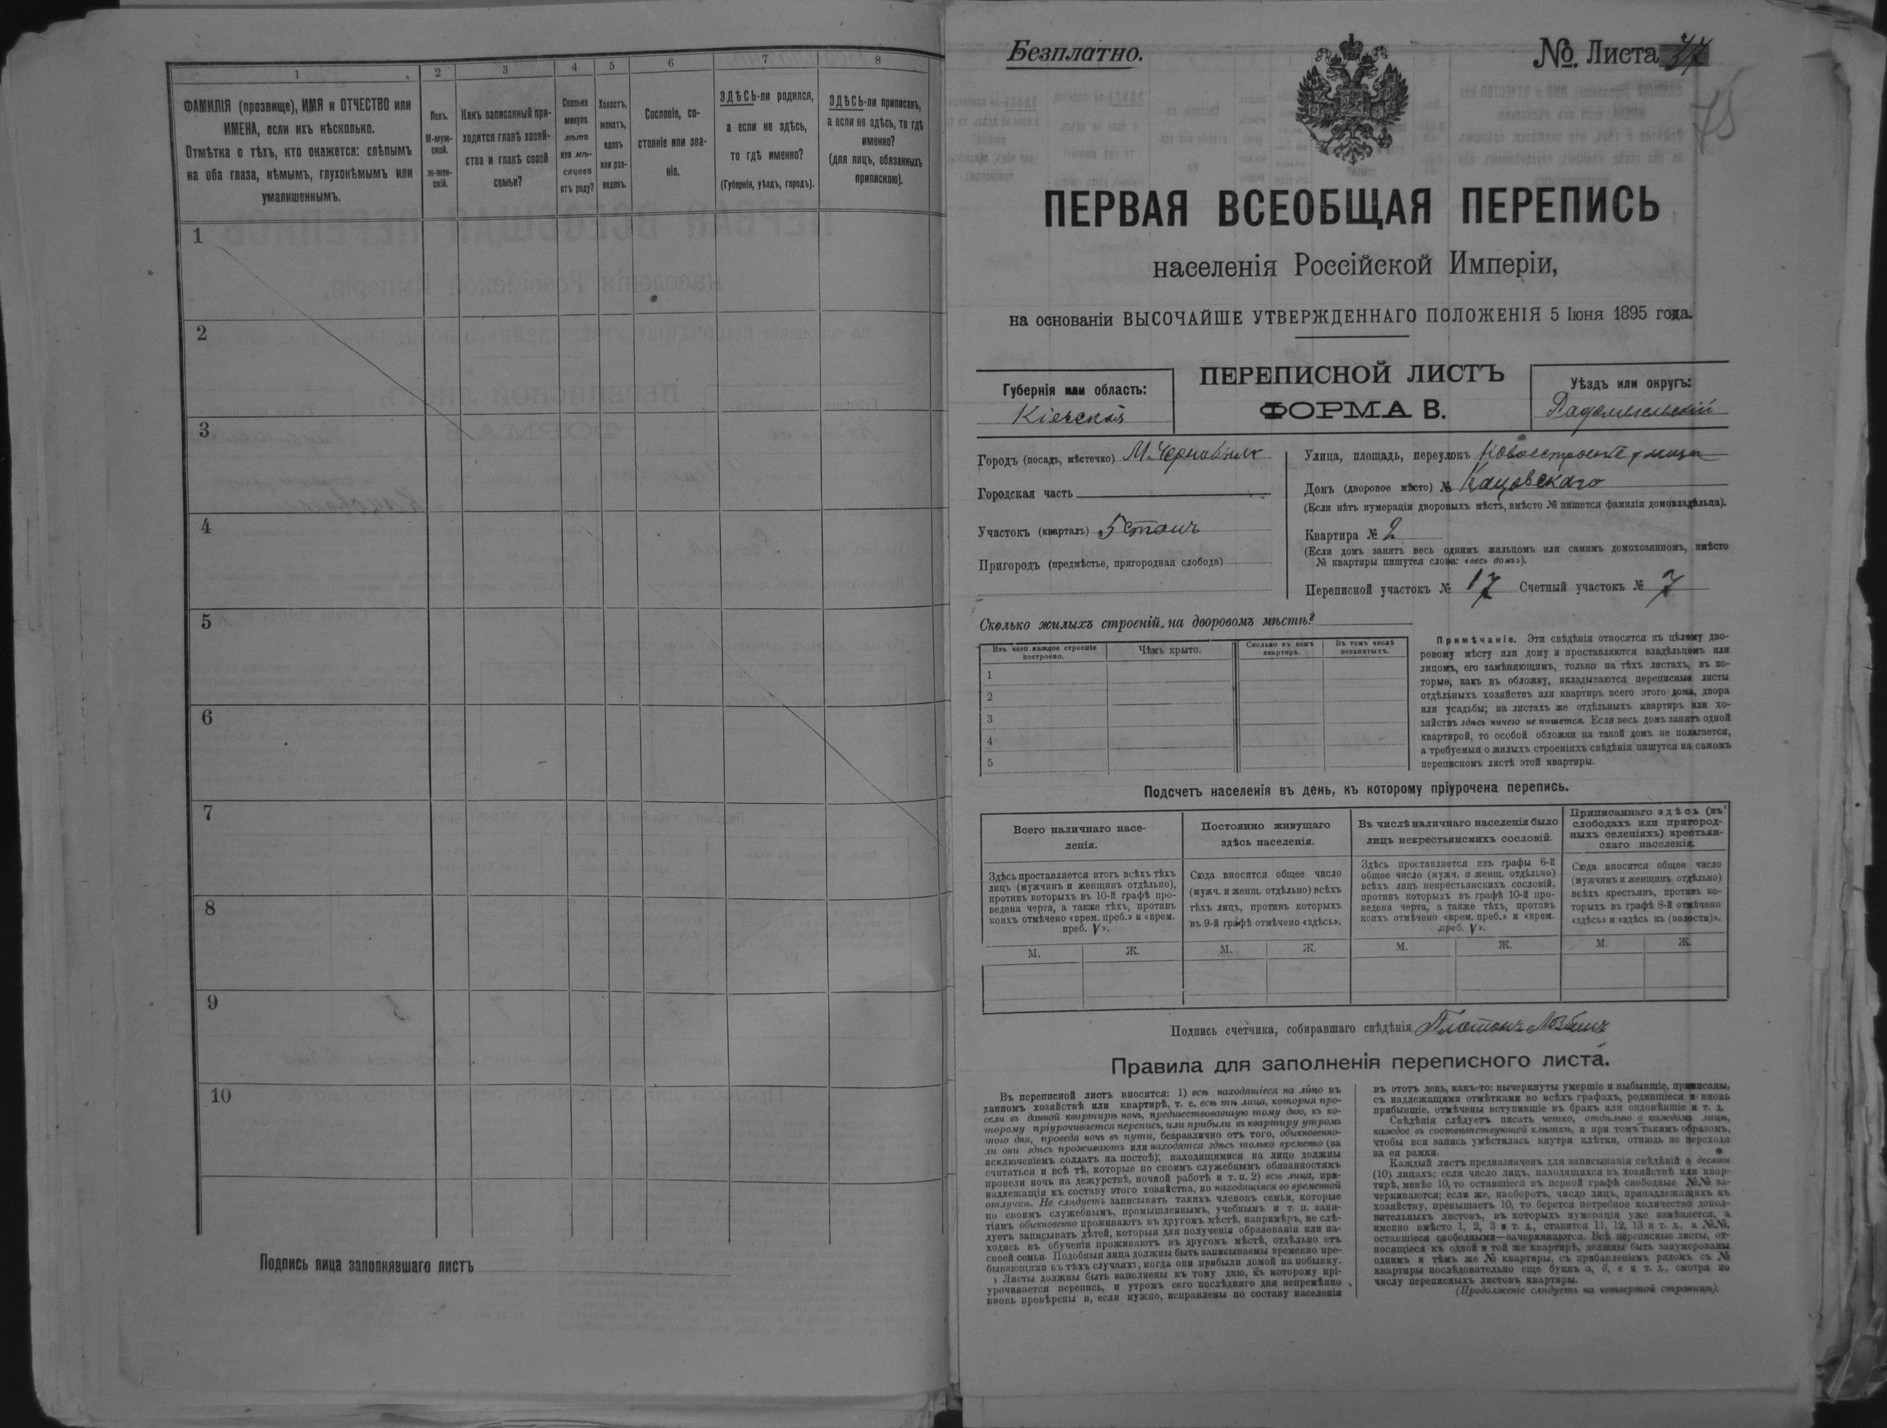 1 2 3 4 5 6 7 8
ФАМИЛІЯ (прозвище), ИМЯ и ОТЧЕСТВО или
ИМЕНА, если ихъ нѣсколько.
Отмѣтка о тѣхъ, кто окажется: слѣпымъ
на оба глаза, нѣмымъ, глухонѣмымъ или
умалишеннымъ.
Полъ.
М-муж-
ской.
Ж-жен-
скій.
Какъ записанный при-
ходится главѣ хозяй-
ства и главѣ своей
семьи?
Сколько
минуло
лѣтъ
или мѣ-
сяцевъ
отъ роду?
Холостъ,
женатъ,
вдовъ
или раз-
веденъ.
Сословіе, со-
стояніе или зва-
ніе.
ЗДѢСЬ-ли родился,
а если не здѣсь,
то гдѣ именно?
(Губернія, уѣздъ, городъ).
ЗДѢСЬ-ли приписанъ,
а если не здѣсь, то гдѣ
именно?
(для лицъ, обязанныхъ
припискою).
1
2
3
4
5
6
7
8
9
10
Подпись лица заполнявшаго листъ
Безплатно.
№ Листа 37
75
ПЕРВАЯ ВСЕОБЩАЯ ПЕРЕПИСЬ
населенія Россійской Имперіи,
на основаніи ВЫСОЧАЙШЕ УТВЕРЖДЕННАГО ПОЛОЖЕНІЯ 5 Іюня 1895 года.
Губернія или область:
Кіевская
ПЕРЕПИСНОЙ ЛИСТЪ
ФОРМА В.
Уѣздъ или округъ:
Радомысльскій
Городъ (посадъ, мѣстечко) М. Чернобыль
Городская часть
Участокъ (кварталъ) 5 станъ
Пригородъ (предмѣстье, пригородная слобода)
Улица, площадь, переулокъ улица
Домъ (дворовое мѣсто) № Кацовскаго
(Если нѣтъ нумераціи дворовыхъ мѣстъ, вмѣсто № пишется фамилія домовладѣльца).
Квартира № 2
(Если домъ занятъ весь однимъ жильцомъ или самимъ домохозяиномъ, вмѣсто
№ квартиры пишутся слова: «весь домъ»).
Переписной участокъ № 17 Счетный участокъ № 7
Сколько жилыхъ строеній на дворовомъ мѣстѣ?
Изъ чего каждое строеніе
построено.
Чѣмъ крыто.
Сколько въ немъ
квартиръ.
Въ томъ числѣ
незанятыхъ.
1
2
3
4
5
Примѣчаніе. Эти свѣдѣнія относятся къ цѣлому дво-
ровому мѣсту или дому и проставляются владѣльцемъ или
лицомъ, его замѣняющимъ, только на тѣхъ листахъ, въ ко-
торые, какъ въ обложку, вкладываются переписные листы
отдѣльныхъ хозяйствъ или квартиръ всего этого дома, двора
или усадьбы; на листахъ же отдѣльныхъ квартиръ или хо-
зяйствъ здѣсь ничего не пишется. Если весь домъ занятъ одной
квартирой, то особой обложки на такой домъ не полагается,
а требуемыя о жилыхъ строеніяхъ свѣдѣнія пишутся на самомъ
переписномъ листѣ этой квартиры.
Подсчетъ населенія въ день, къ которому пріурочена перепись.
Всего наличнаго насе-
ленія.
Здѣсь проставляется итогъ всѣхъ тѣхъ
лицъ (мужчинъ и женщинъ отдѣльно),
противъ которыхъ въ 10-й графѣ про-
ведена черта, а также тѣхъ, противъ
коихъ отмѣчено «врем. проб.» и «врем.
преб. V».
Постоянно живущаго
здѣсь населенія.
Сюда вносится общее число
(мужч. и женщ. отдѣльно) всѣхъ
тѣхъ лицъ, противъ которыхъ
въ 9-й графѣ отмѣчено «здѣсь».
Въ числѣ наличнаго населенія было
лицъ некрестьянскихъ сословій.
Здѣсь проставляется изъ графы 6-й
общее число (мужч. и женщ. отдѣльно)
всѣхъ лицъ некрестьянскихъ сословій,
противъ которыхъ въ графѣ 10-й про-
ведена черта, а также тѣхъ, противъ
коихъ отмѣчено «врем. преб.» и «врем.
преб. V».
Приписаннаго здѣсь (въ
слободахъ или пригород-
ныхъ селеніяхъ) крестьян-
скаго населенія.
Сюда вносится общее число
(мужчинъ и женщинъ отдѣльно)
всѣхъ крестьянъ, противъ ко-
торыхъ въ графѣ 8-й отмѣчено
«здѣсь» и «здѣсь къ (волости)».
М. Ж. М. Ж. М. Ж. М. Ж.
Подпись счетчика, собиравшаго свѣдѣнія Платонъ
Правила для заполненія переписного листа.
Въ переписной листъ вносятся: 1) всѣ находящіеся на лицо въ
данномъ хозяйствѣ или квартирѣ, т. е. всѣ тѣ лица, которыя про-
вели въ данной квартирѣ ночь, предшествовавшую тому дню, къ ко-
торому пріурочивается перепись, или прибыли въ квартиру утромъ
того дня, проведя ночь въ пути, безразлично отъ того, обыкновенно-
ли они здѣсь проживаютъ или находятся здѣсь только временно (за
исключеніемъ солдатъ на постоѣ); находящимися на лицо должны
считаться и всѣ тѣ, которые по своимъ служебнымъ обязанностямъ
провели ночь на дежурствѣ, ночной работѣ и т. п. 2) всѣ лица, при-
надлежащія къ составу этого хозяйства, но находящіяся во временной
отлучкѣ. Не слѣдуетъ записывать такихъ членовъ семьи, которые
по своимъ служебнымъ, промышленнымъ, учебнымъ и т. п. заня-
тіямъ обыкновенно проживаютъ въ другомъ мѣстѣ, напримѣръ, не слѣ-
дуетъ записывать дѣтей, которыя для полученія образованія или на-
ходясь въ обученіи проживаютъ въ другомъ мѣстѣ, отдѣльно отъ
своей семьи. Подобныя лица должны быть записываемы временно пре-
бывающими въ тѣхъ случаяхъ, когда они прибыли домой на побывку.
Листы должны быть заполнены къ тому дню, къ которому прі-
урочивается перепись, и утромъ сего послѣдняго дня непремѣнно
вновь провѣрены и, если нужно, исправлены по составу населенія
въ этотъ день, какъ-то: вычеркнуты умершіе и выбывшіе, приписаны,
съ надлежащими отмѣтками во всѣхъ графахъ, родившіеся и вновь
прибывшіе, отмѣчены вступившіе въ бракъ или овдовѣвшіе и т. д.
Свѣдѣнія слѣдуетъ писать четко, отдѣльно о каждомъ лицѣ,
каждое въ соотвѣтствующей клѣткѣ, и при томъ такимъ образомъ,
чтобы вся запись умѣстилась внутри клѣтки, отнюдь не переходя
за ея рамки.
Каждый листъ предназначенъ для записыванія свѣдѣній о десяти
(10) лицахъ; если число лицъ, находящихся въ хозяйствѣ или квар-
тирѣ, менѣе 10, то оставшіеся въ первой графѣ свободные №№ за-
черкиваются; если же, наоборотъ, число лицъ, принадлежащихъ къ
хозяйству, превышаетъ 10, то берется потребное количество допол-
нительныхъ листовъ, въ которыхъ нумерація уже измѣняется, а
именно вмѣсто 1, 2, 3 и т. д., ставится 11, 12, 13 и т. д., а №№,
оставшіеся свободными—зачеркиваются. Всѣ переписные листы, от-
носящіеся къ одной и той же квартирѣ, должны быть занумерованы
однимъ и тѣмъ же № квартиры, съ прибавленіемъ рядомъ съ №
квартиры послѣдовательно еще буквъ а, б, в и т. д., смотря по
числу переписныхъ листовъ квартиры.
(Продолженіе слѣдуетъ на четвертой страницѣ).